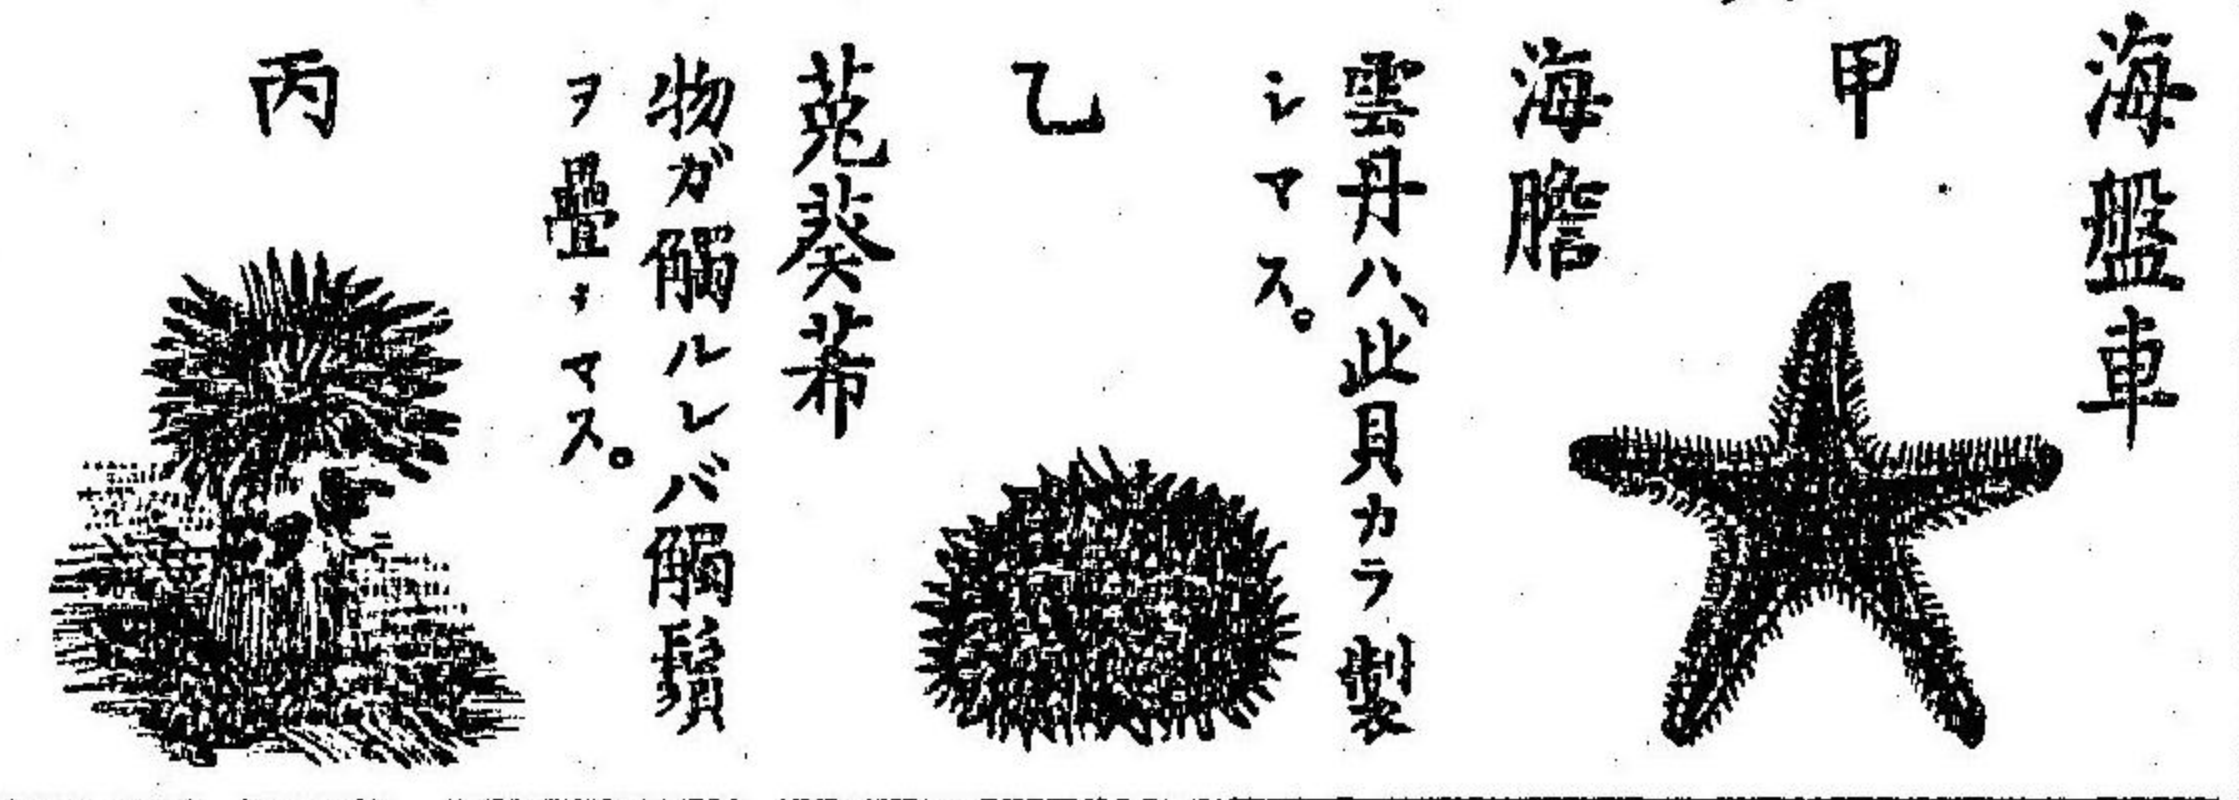 海盤車
甲
海膽
雲丹ハ、此貝カラ製
シマス。
乙
菟葵蒂
物ガ觸ルレバ觸鬚
ヲ疊ミマス。
丙